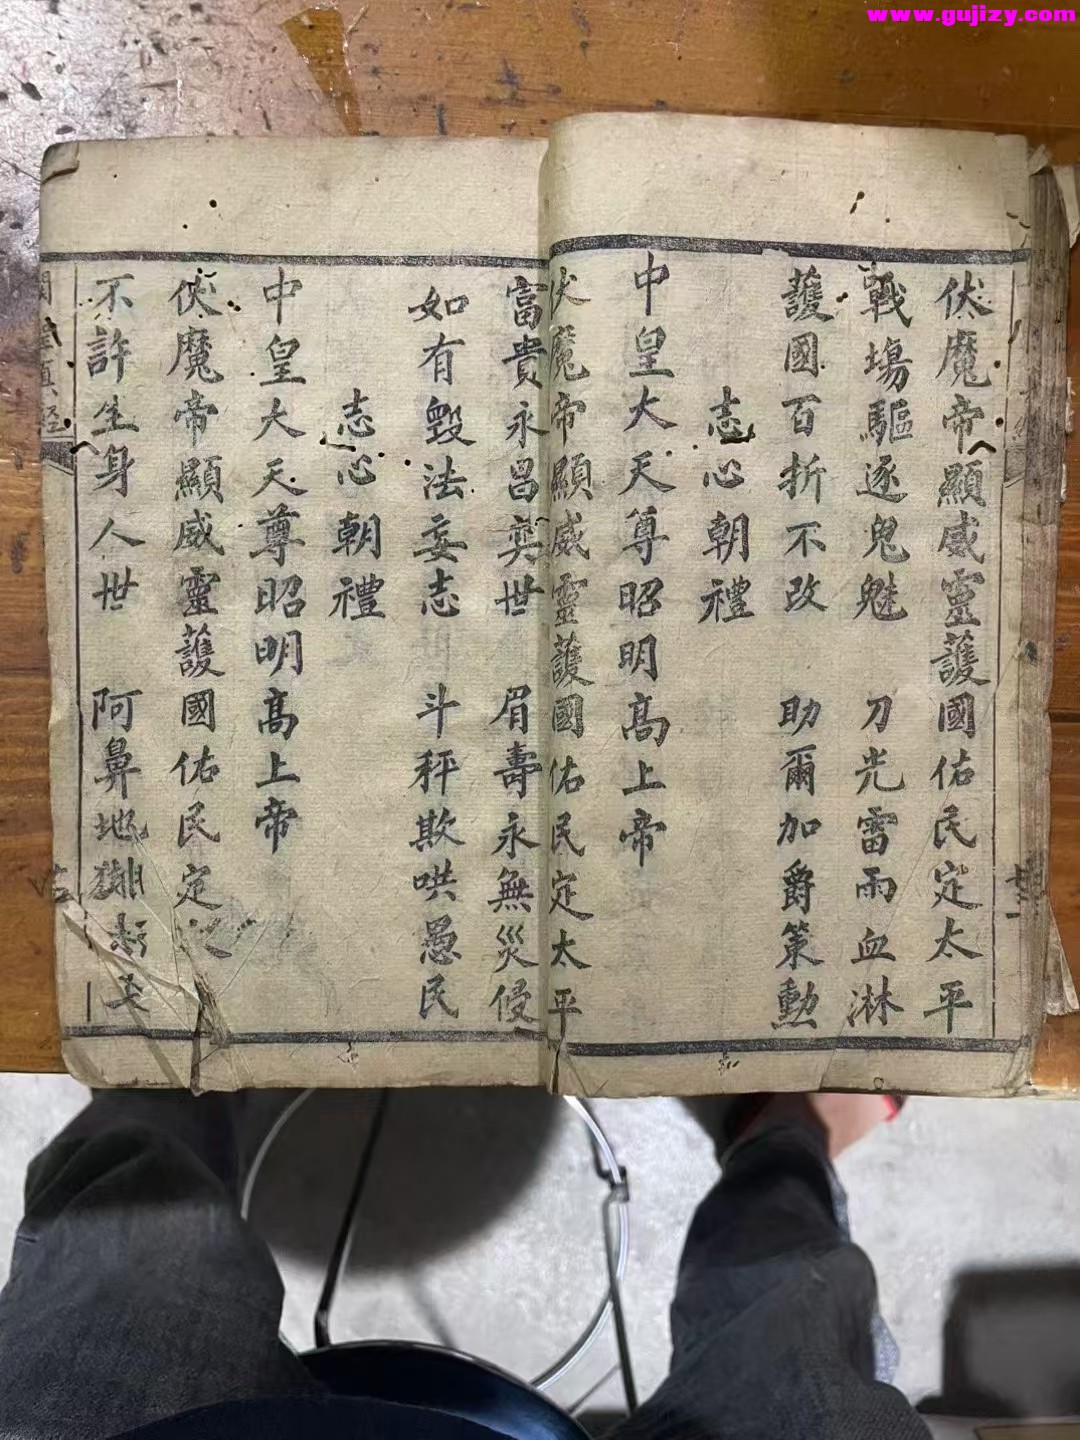 www.gujizy.com
伏魔帝顯威靈護國佑民定太平
戰塲驅逐鬼魅　刀光雷雨血淋
護國百折不改　助爾加爵策勳
志心朝禮
中皇大天尊昭明高上帝
伏魔帝顯威靈護國佑民定太平
富貴永昌奕世　眉壽永無災侵
如有毀法妄志　斗秤欺哄愚民
志心朝禮
中皇大天尊昭明高上帝
伏魔帝顯威靈護國佑民定
不許生身人世　阿鼻地獄
真經